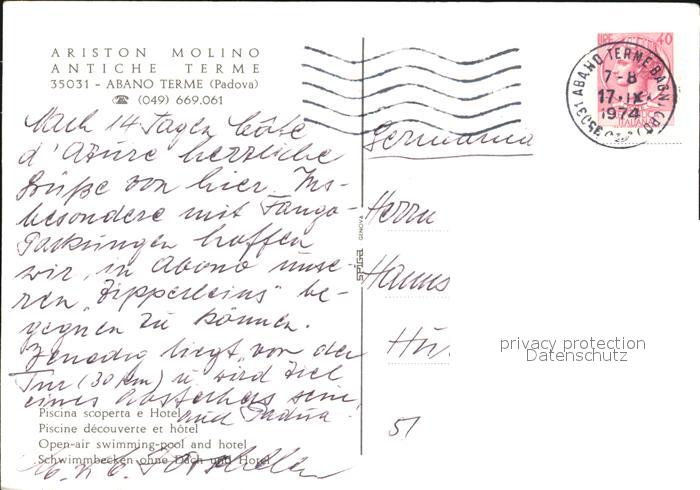 ARISTON MOLINO
ANTICHE TERME
35031 - ABANO TERME (Padova)
☎ (049) 669.061
Nach 14 Tagen Côte
d'Azure herzliche
Grüße von hier. Ins-
besondere mit Fango-
Packungen hoffen
wir, in Abano unse-
ren "Zipperleins" be-
gegnen zu können.
Venedig liegt "vor der
Tür (30 km) u. wird Ziel
eines Abstechers sein,
und Padua!
Piscina scoperta e Hotel
Piscine découverte et hôtel
Open-air swimming-pool and hotel
Schwimmbecken ohne Dach und Hotel
SPIGA GENOVA
LIRE 40
35031 ABANO TERME BAGNI
7-8
17.IX
1974
Germania
Herrn
Hanns
51
privacy protection
Datenschutz